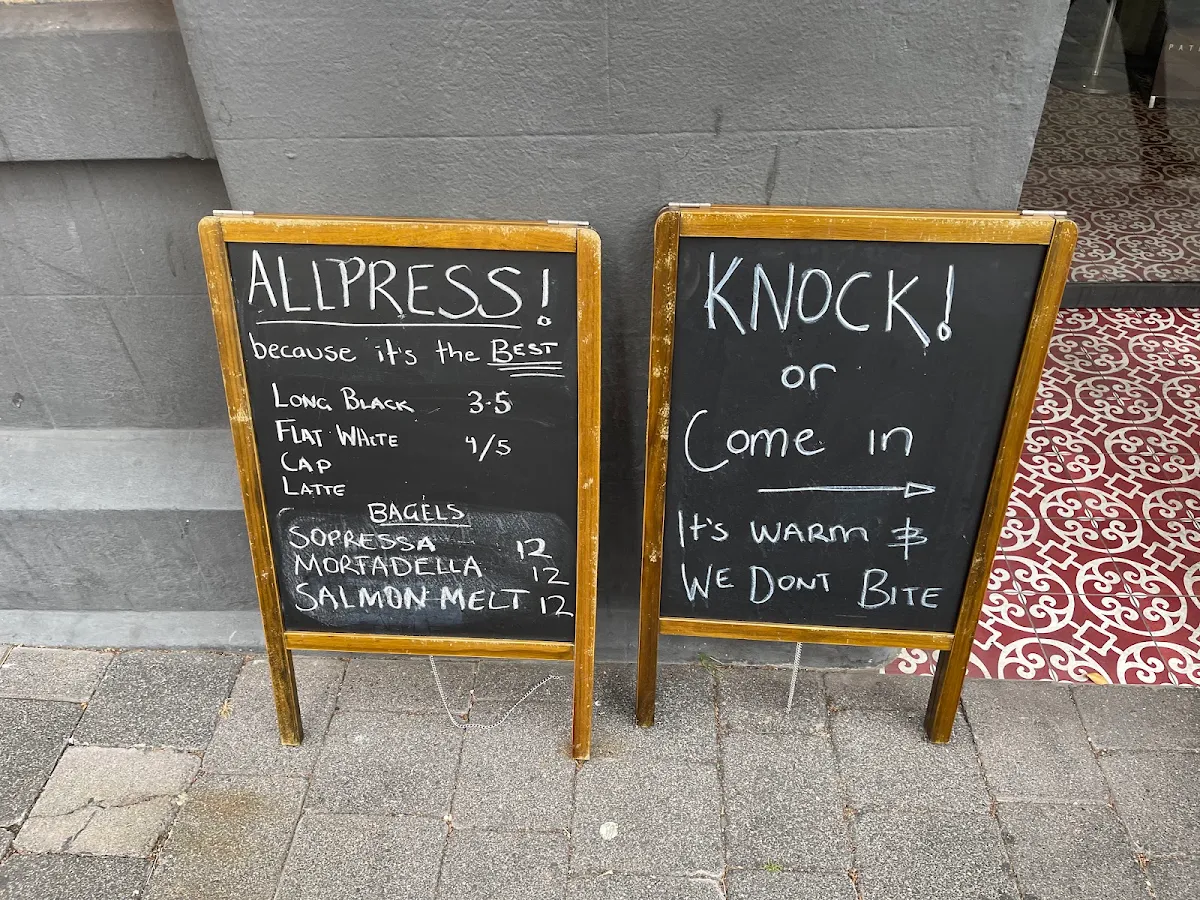 ALLPRESS!
because it's the BEST
LONG BLACK 3.5
FLAT WHITE 4/5
CAP
LATTE
BAGELS
SOPRESSA 12
MORTADELLA 12
SALMON MELT 12
KNOCK!
or
Come in
IT'S WARM &
WE DONT BITE